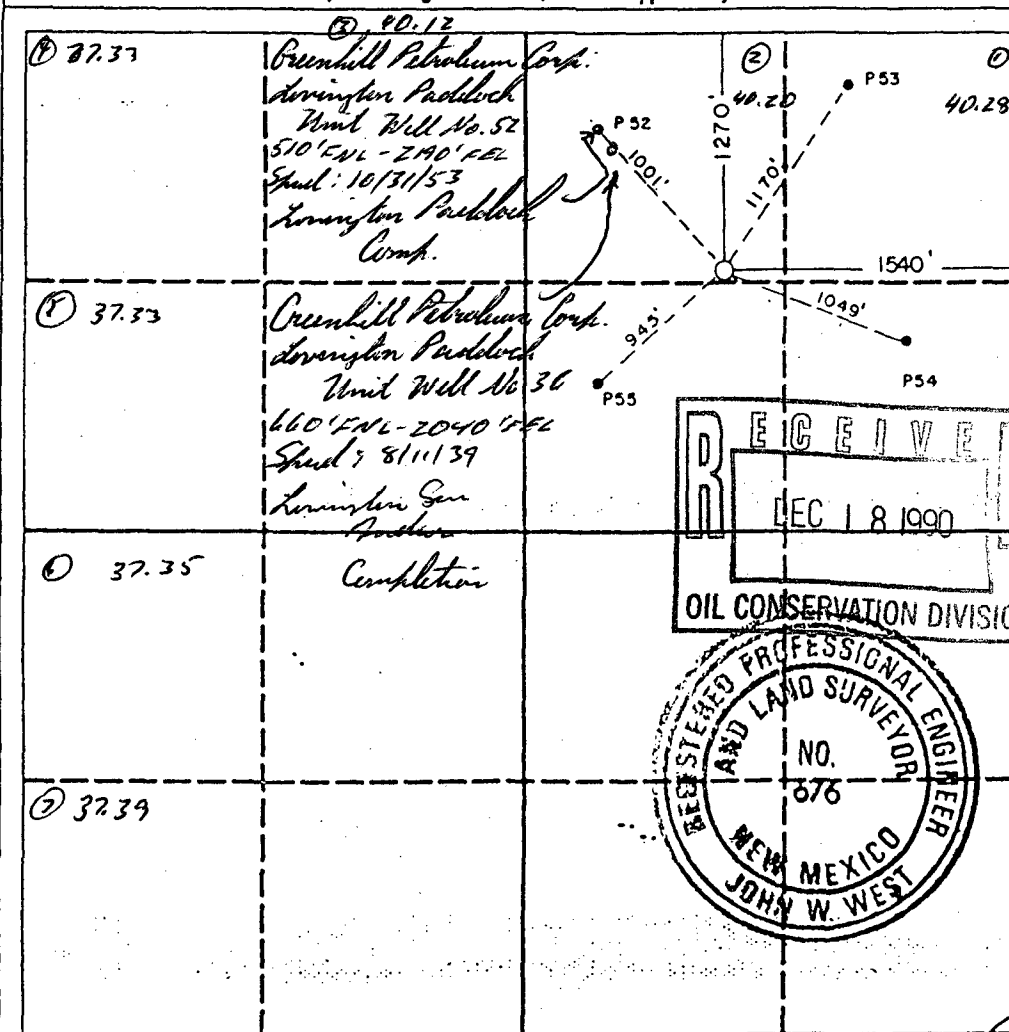 ③ 40.12
④ 37.33
Greenhill Petroleum Corp.
Lovington Paddock
Unit Well No. 52
510' FNL - 2190' FEL
Spud: 10/31/53
Lovington Paddock
Comp.
②
40.20
①
40.28
P53
P 52
1270'
1001'
1170'
1540'
⑤ 37.33
Greenhill Petroleum Corp.
Lovington Paddock
Unit Well No 36
660' FNL - 2040' FEL
Spud: 8/11/39
Lovington San
Andres
Completion
945'
1049'
P55
P54
RECEIVE
DEC 18 1990
OIL CONSERVATION DIVISIO
⑥ 37.35
⑦ 37.39
REGISTERED PROFESSIONAL ENGINEER
AND LAND SURVEYOR
NO.
676
NEW MEXICO
JOHN W. WEST